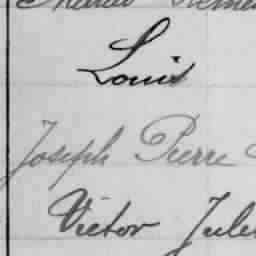 Louis
Joseph Pierre
Victor Jules